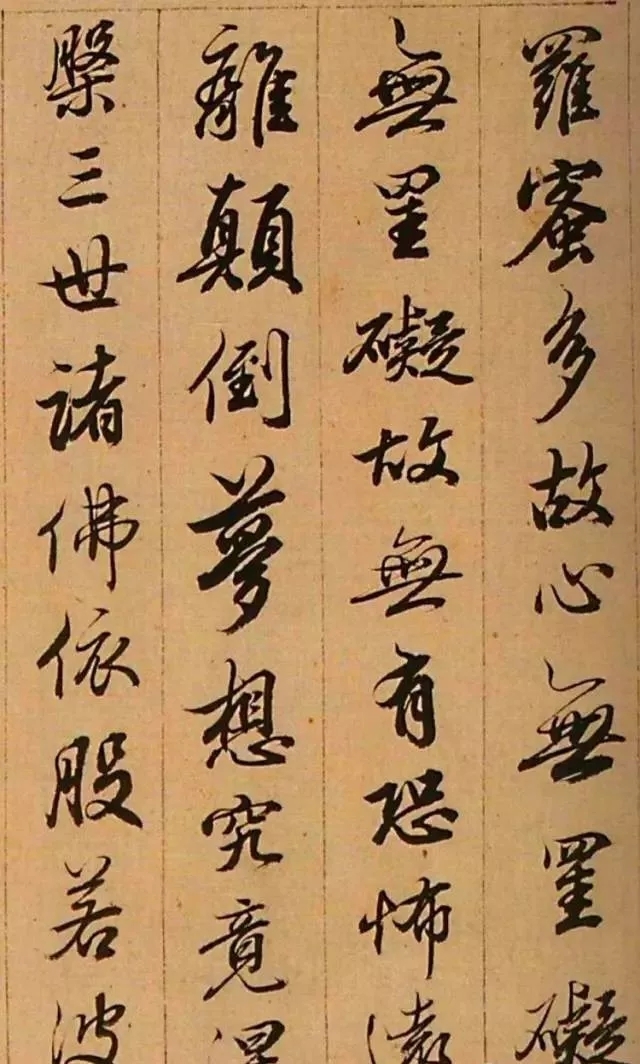 羅蜜多故心無罣礙
無罣礙故無有恐怖遠
離顛倒夢想究竟涅
槃三世諸佛依般若波